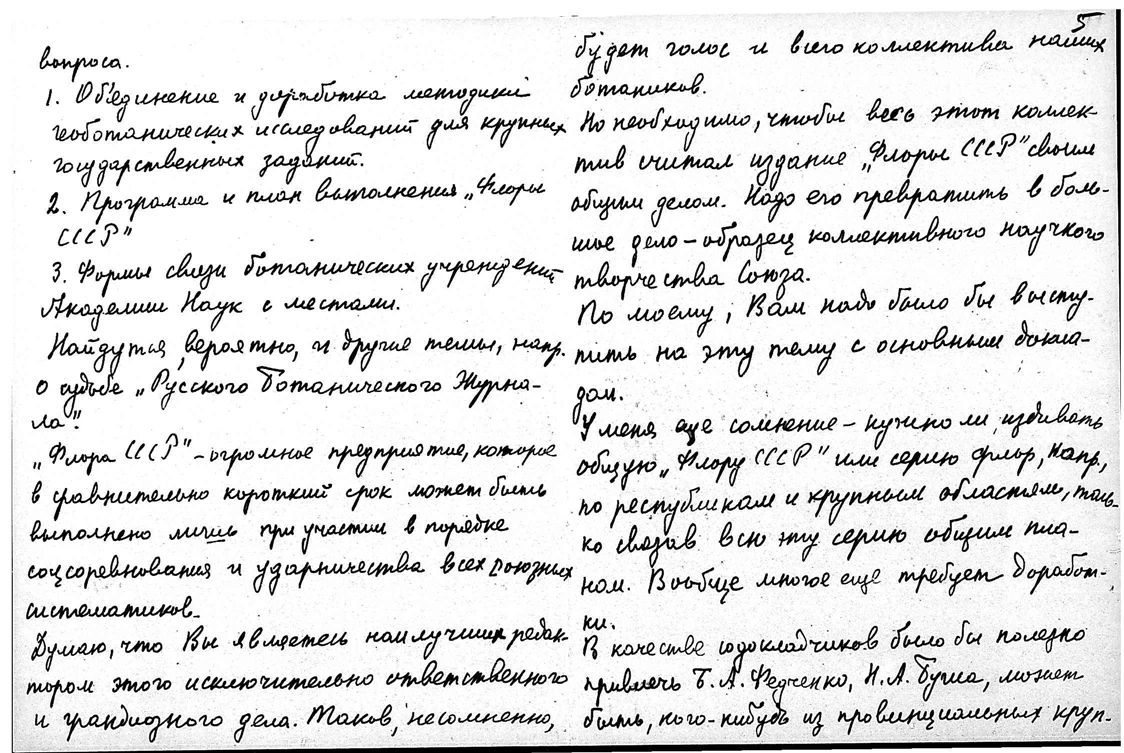 вопроса.
1. Об'единение и доработка методики
геоботанических исследований для крупных
государственных заданий.
2. Программа и план выполнения „Флоры
СССР"
3. Формы связи ботанических учреждений
Академии Наук с местами.
Найдутся, вероятно, и другие темы, напр.
о судьбе „Русского Ботанического Журна-
ла".
„Флора СССР" - огромное предприятие, которое
в сравнительно короткий срок может быть
выполнено лишь при участии в порядке
соцсоревнования и ударничества всех союзных
систематиков.
Думаю, что Вы являетесь наилучшим редак-
тором этого исключительно ответственного
и грандиозного дела. Таков, несомненно,
5
будет голос и всего коллектива наших
ботаников.
Но необходимо, чтобы весь этот коллек-
тив считал издание „Флоры СССР" своим
общим делом. Надо его превратить в боль-
шое дело - образец коллективного научного
творчества Союза.
По моему, Вам надо было бы высту-
пить на эту тему с основным докла-
дом.
У меня еще сомнение - нужно ли издавать
общую „Флору СССР" или серию флор, напр.,
по республикам и крупным областям, толь-
ко связав всю эту серию общим пла-
ном. Вообще многое еще требует доработ-
ки.
В качестве содокладчиков было бы полезно
привлечь Б. А. Федченко, Н. А. Буша, может
быть, кого-нибудь из провинциальных круп-